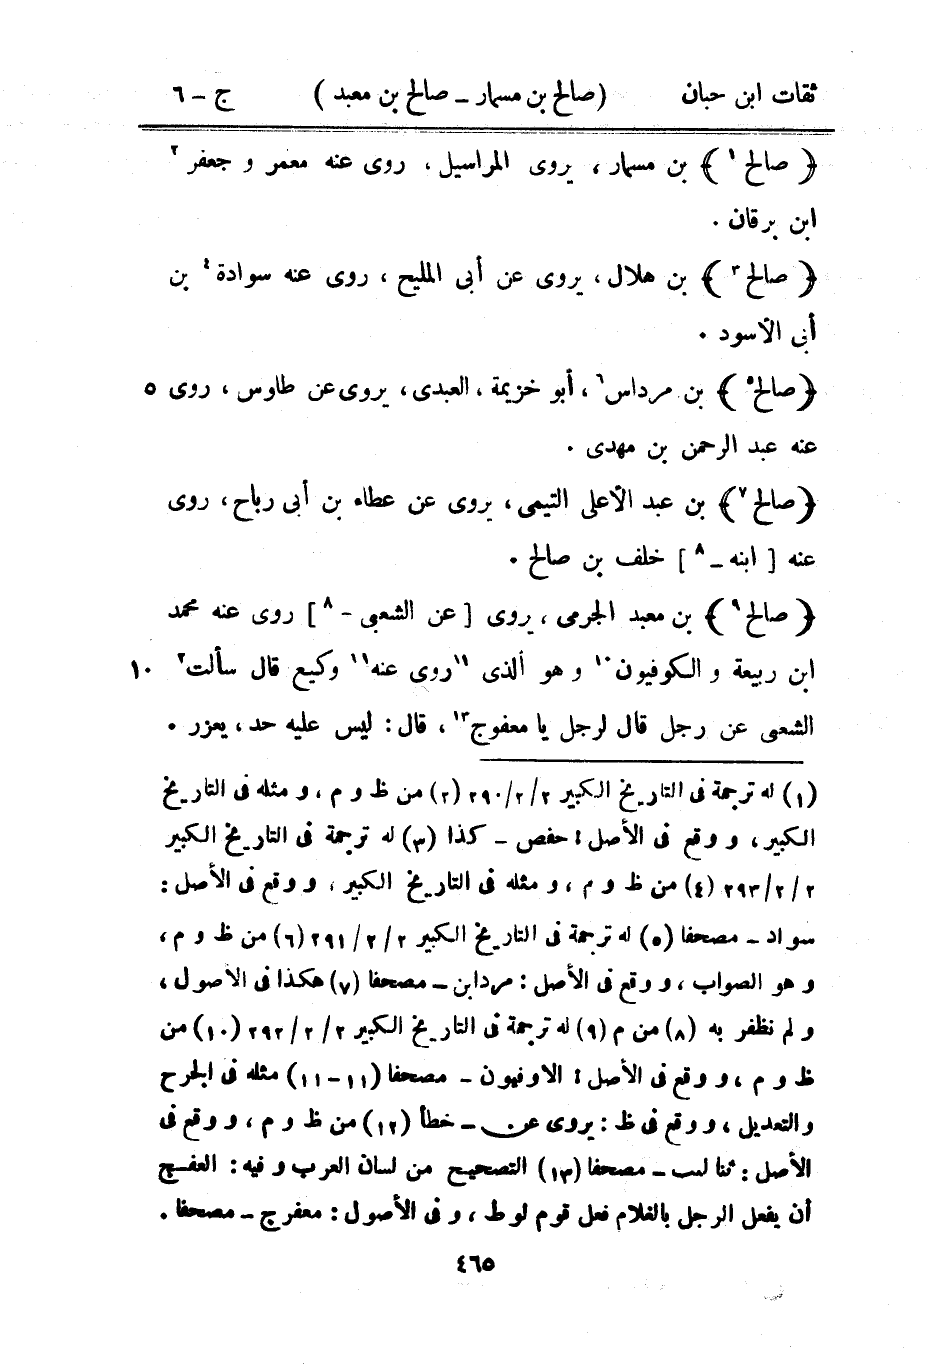 ثقات ابن حبان (صالح بن مسمار ــ صالح بن معبد) ج ــ ٦
﴿ صالح ١ ﴾ بن مسمار، يروى المراسيل، روى عنه معمر و جعفر ٢
ابن برقان .
﴿ صالح ٣ ﴾ بن هلال، يروى عن أبى المليح، روى عنه سوادة ٤ بن
أبى الأسود .
﴿صالح ٥ ﴾ بن مرداس ٦، أبو خزيمة، العبدى، يروى عن طاوس، روى ٥
عنه عبد الرحمن بن مهدى .
﴿صالح ٧ ﴾ بن عبد الأعلى التيمى، يروى عن عطاء بن أبى رباح، روى
عنه [ ابنه ــ ٨ ] خلف بن صالح .
﴿ صالح ٩ ﴾ بن معبد الجرمى، روى [ عن الشعبى - ٨ ] روى عنه محمد
ابن ربيعة و الكوفيون ١٠ و هو ألذى ١١ روى عنه ١١ وكيع قال سألت ٢ ١٠
الشعبى عن رجل قال لرجل يا معفوج ١٣، قال: ليس عليه حد، يعزر .
(١) له ترجمة فى التاريخ الكبير ٢/٢/ ٢٩٠ (٢) من ظ و م، و مثله فى التاريخ
الكبير، و وقع فى الأصل: حفص ــ كذا (٣) له ترجمة فى التاريخ الكبير
٢/٢/ ٢٩٣ (٤) من ظ و م، و مثله فى التاريخ الكبير، و وقع فى الأصل:
سواد ــ مصحفا (٥) له ترجمة فى التاريخ الكبير ٢/٢/ ٢٩١ (٦) من ظ و م،
و هو الصواب، و وقع فى الأصل: مردابن ــ مصحفا (٧) هكذا فى الأصول،
و لم نظفر به (٨) من م (٩) له ترجمة فى التاريخ الكبير ٢/٢/ ٢٩٢ (١٠) من
ظ و م، و وقع فى الأصل: الاوفيون ــ مصحفا (١١-١١) مثله فى الجرح
والتعديل، و وقع فى ظ: يروى عن ــ خطأ (١٢) من ظ و م، و وقع فى
الأصل: ثنا لسب ــ مصحفا (١٣) التصحيح من لسان العرب و فيه: العفج
أن يفعل الرجل بالغلام فعل قوم لوط، و فى الأصول: معفرج ــ مصحفا.
٤٦٥